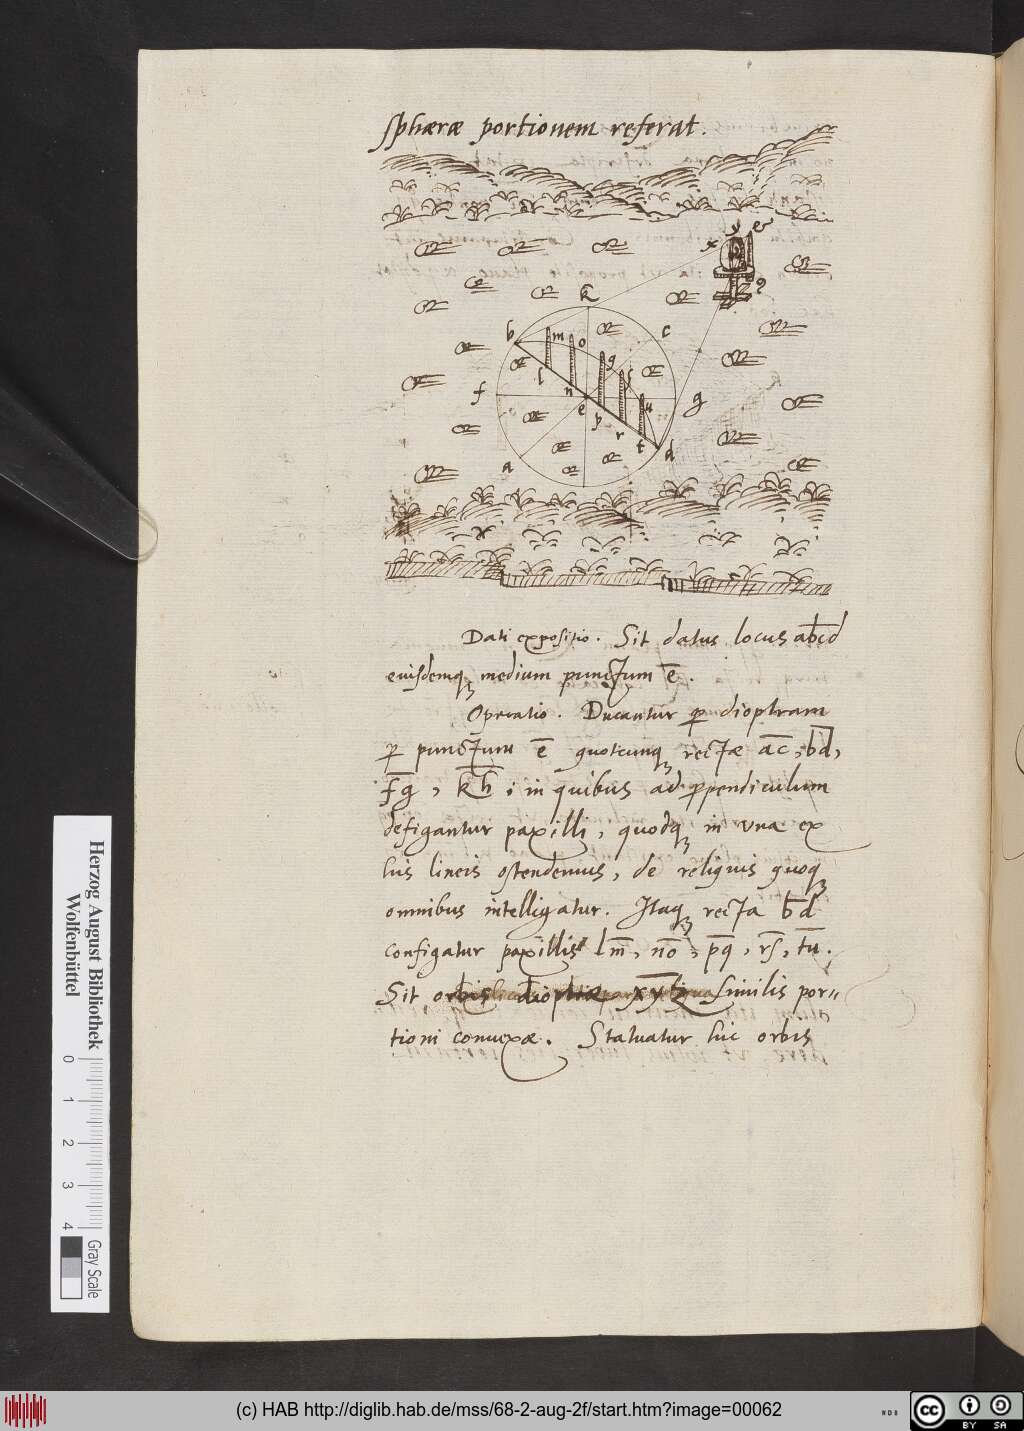 sphæræ portionem referat.
x y &
z
k
b m o c
q
l s
f n u g
e p
r t
a d
Dati expositio. Sit datus locus abcd
eiusdemq medium punctum e.
Operatio. Ducantur p dioptram
p punctum e quotcunq rectæ ac, bd,
fg, kh : in quibus ad ppendiculum
defigantur paxilli, quodq in vna ex
his lineis ostendemus, de reliquis quoq
omnibus intelligatur. Itaq recta bd
configatur paxillis lm, no, pq, rs, tu.
Sit orbis dioptræ xyz similis por=
tioni conuexæ. Statuatur hic orbis
Herzog August Bibliothek
Wolfenbüttel
0 1 2 3 4
Gray Scale
(c) HAB http://diglib.hab.de/mss/68-2-aug-2f/start.htm?image=00062
cc BY SA